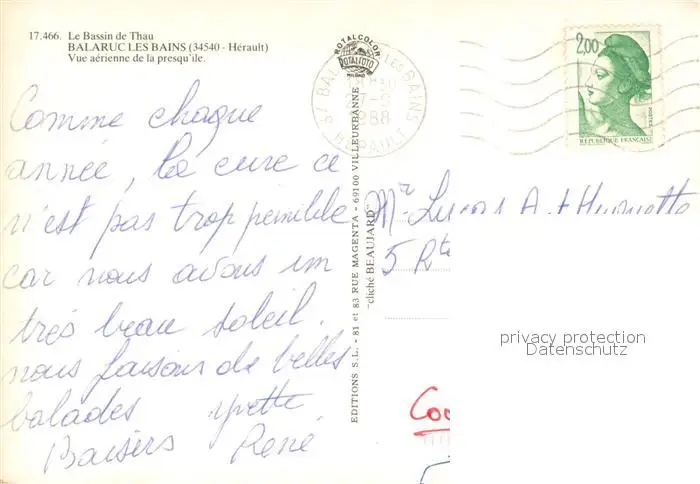 17.466. Le Bassin de Thau
BALARUC LES BAINS (34540 - Hérault)
Vue aérienne de la presqu'ile.
ROTALCOLOR
ROTALFOTO
MILANO
LES BAINS
1988
HERAULT
2,00
POSTES
REPUBLIQUE FRANÇAISE
Comme chaque
année, la cure ce
n'est pas trop penible
car nous avons un
très beau soleil.
nous faisons de belles
balades yvette
Baisers René
EDITIONS S.L. - 81 et 83 RUE MAGENTA - 69100 VILLEURBANNE
"cliché BEAUJARD"
Mr Lucas
5 Rte
privacy protection
Datenschutz